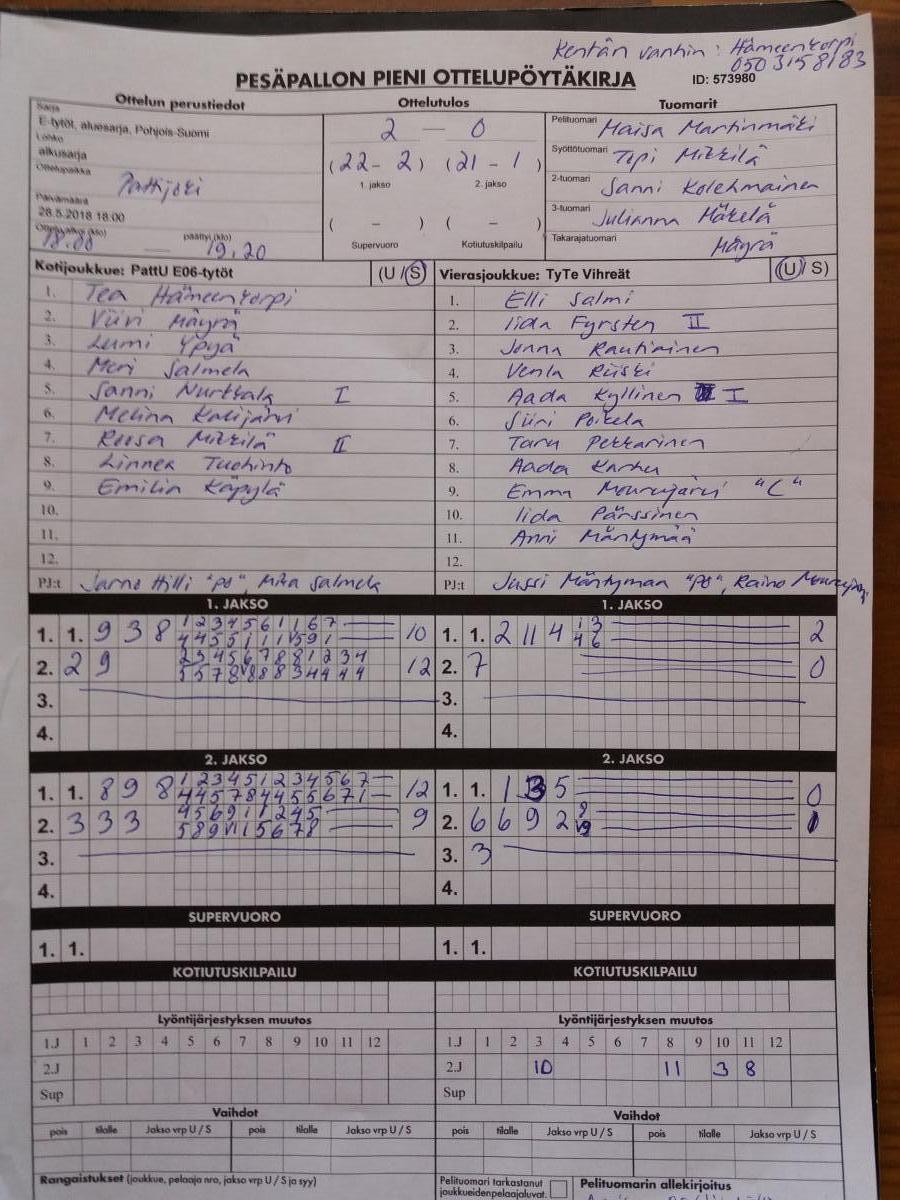 Kentän vanhin: Hämeenkorpi
050 3158183
PESÄPALLON PIENI OTTELUPÖYTÄKIRJA ID: 573980
Ottelun perustiedot Ottelutulos Tuomarit
Sarja
E-tytöt, aluesarja, Pohjois-Suomi
Lohko
alkusarja
Ottelupaikka
Pattijoki
Päivämäärä
28.5.2018 18:00
Otteluaika (klo) 18.00 — päättyi (klo) 19.20
2 — 0
(22 - 2) (21 - 1)
1. jakso 2. jakso
( - ) ( - )
Supervuoro Kotiutuskilpailu
Pelituomari Maisa Martinmäki
Syöttötuomari Topi Mikkilä
2-tuomari Sanni Kolehmainen
3-tuomari Julianna Mäkelä
Takarajatuomari Mäyrä
Kotijoukkue: PattU E06-tytöt (U / S)
1. Tea Hämeenkorpi
2. Viivi Mäyrä
3. Lumi Ypyä
4. Meri Salmela
5. Sanni Nurkkala I
6. Melina Kalijärvi
7. Roosa Mikkilä II
8. Linnea Tuohinto
9. Emilia Käpylä
10.
11.
12.
PJ:t Jarno Hilli "PJ", Mika Salmela
Vierasjoukkue: TyTe Vihreät (U / S)
1. Elli Salmi
2. Iida Fyrsten II
3. Jonna Rautiainen
4. Venla Riiski
5. Aada Kyllinen I
6. Siiri Poikela
7. Taru Pekkarinen
8. Aada Karhu
9. Emma Mourujärvi "C"
10. Iida Pärssinen
11. Anni Mäntymaa
12.
PJ:t Jussi Mäntymaa "PJ", Raino Mourujärvi
1. JAKSO 1. JAKSO
1. 1. 9 3 8 10
2. 2 9 12
3.
4.
1. 1. 2 11 4 2
2. 7 0
3.
4.
2. JAKSO 2. JAKSO
1. 1. 8 9 8 12
2. 3 3 3 9
3.
4.
1. 1. 1 3 5 0
2. 6 6 9 2 1
3. 3
4.
SUPERVUORO SUPERVUORO
1. 1. 1. 1.
KOTIUTUSKILPAILU KOTIUTUSKILPAILU
Lyöntijärjestyksen muutos Lyöntijärjestyksen muutos
1.J 1 2 3 4 5 6 7 8 9 10 11 12 1.J 1 2 3 4 5 6 7 8 9 10 11 12
2.J 2.J 10 11 3 8
Sup Sup
Vaihdot Vaihdot
pois tilalle Jakso vrp U / S pois tilalle Jakso vrp U / S pois tilalle Jakso vrp U / S pois tilalle Jakso vrp U / S
Rangaistukset (joukkue, pelaaja nro, jakso vrp U / S ja syy) Pelituomari tarkastanut joukkueidenpelaajaluvat. Pelituomarin allekirjoitus